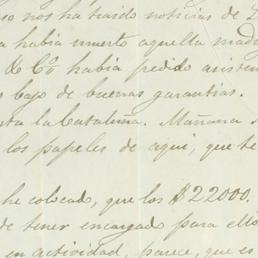 so nos ha traido noticias de L
a habia muerto aquella mad
& Cº habia pedido asisten
s bajo de buenas garantias.
nta la Cataluña. Mañana
los papeles de aqui, que te
he colocado, que los $22000.
de tener encargado para ello
en actividad, parece, que es